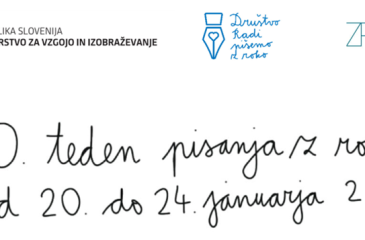 LIKA SLOVENIJA
RSTVO ZA VZGOJO IN IZOBRAŽEVANJE
Društvo
Radi
pišemo
z roko
0. teden pisanja z ro
d 20. do 24. januarja 2